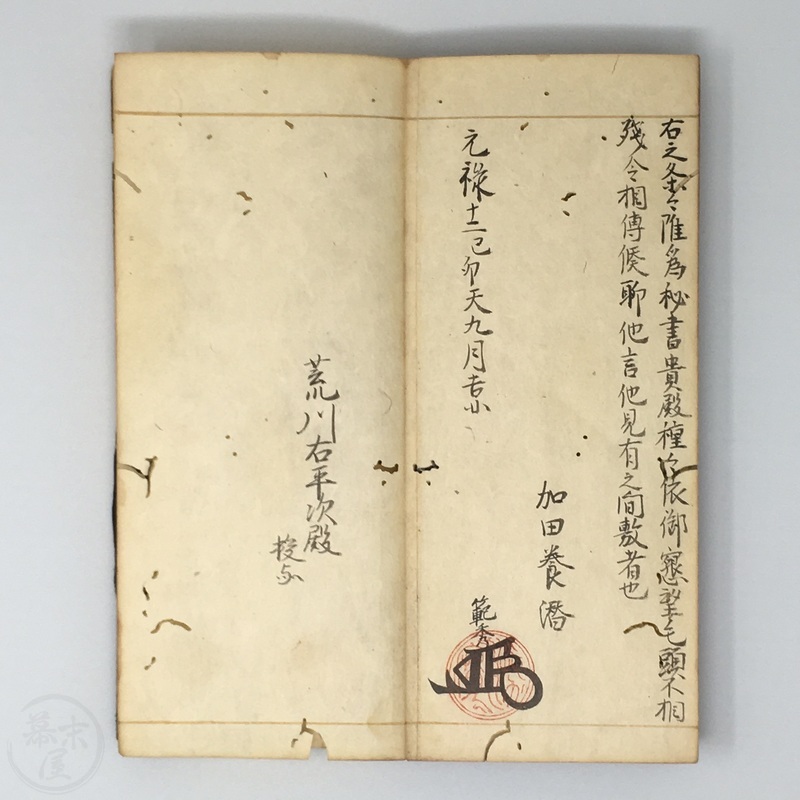 右之条々雖為秘書貴殿種々依御懇望毛頭不相
残令相傳候聊他言他見有之間敷者也
加田養潘
範秀
元禄十二己卯天九月吉日
荒川右平次殿
授与
幕末屋